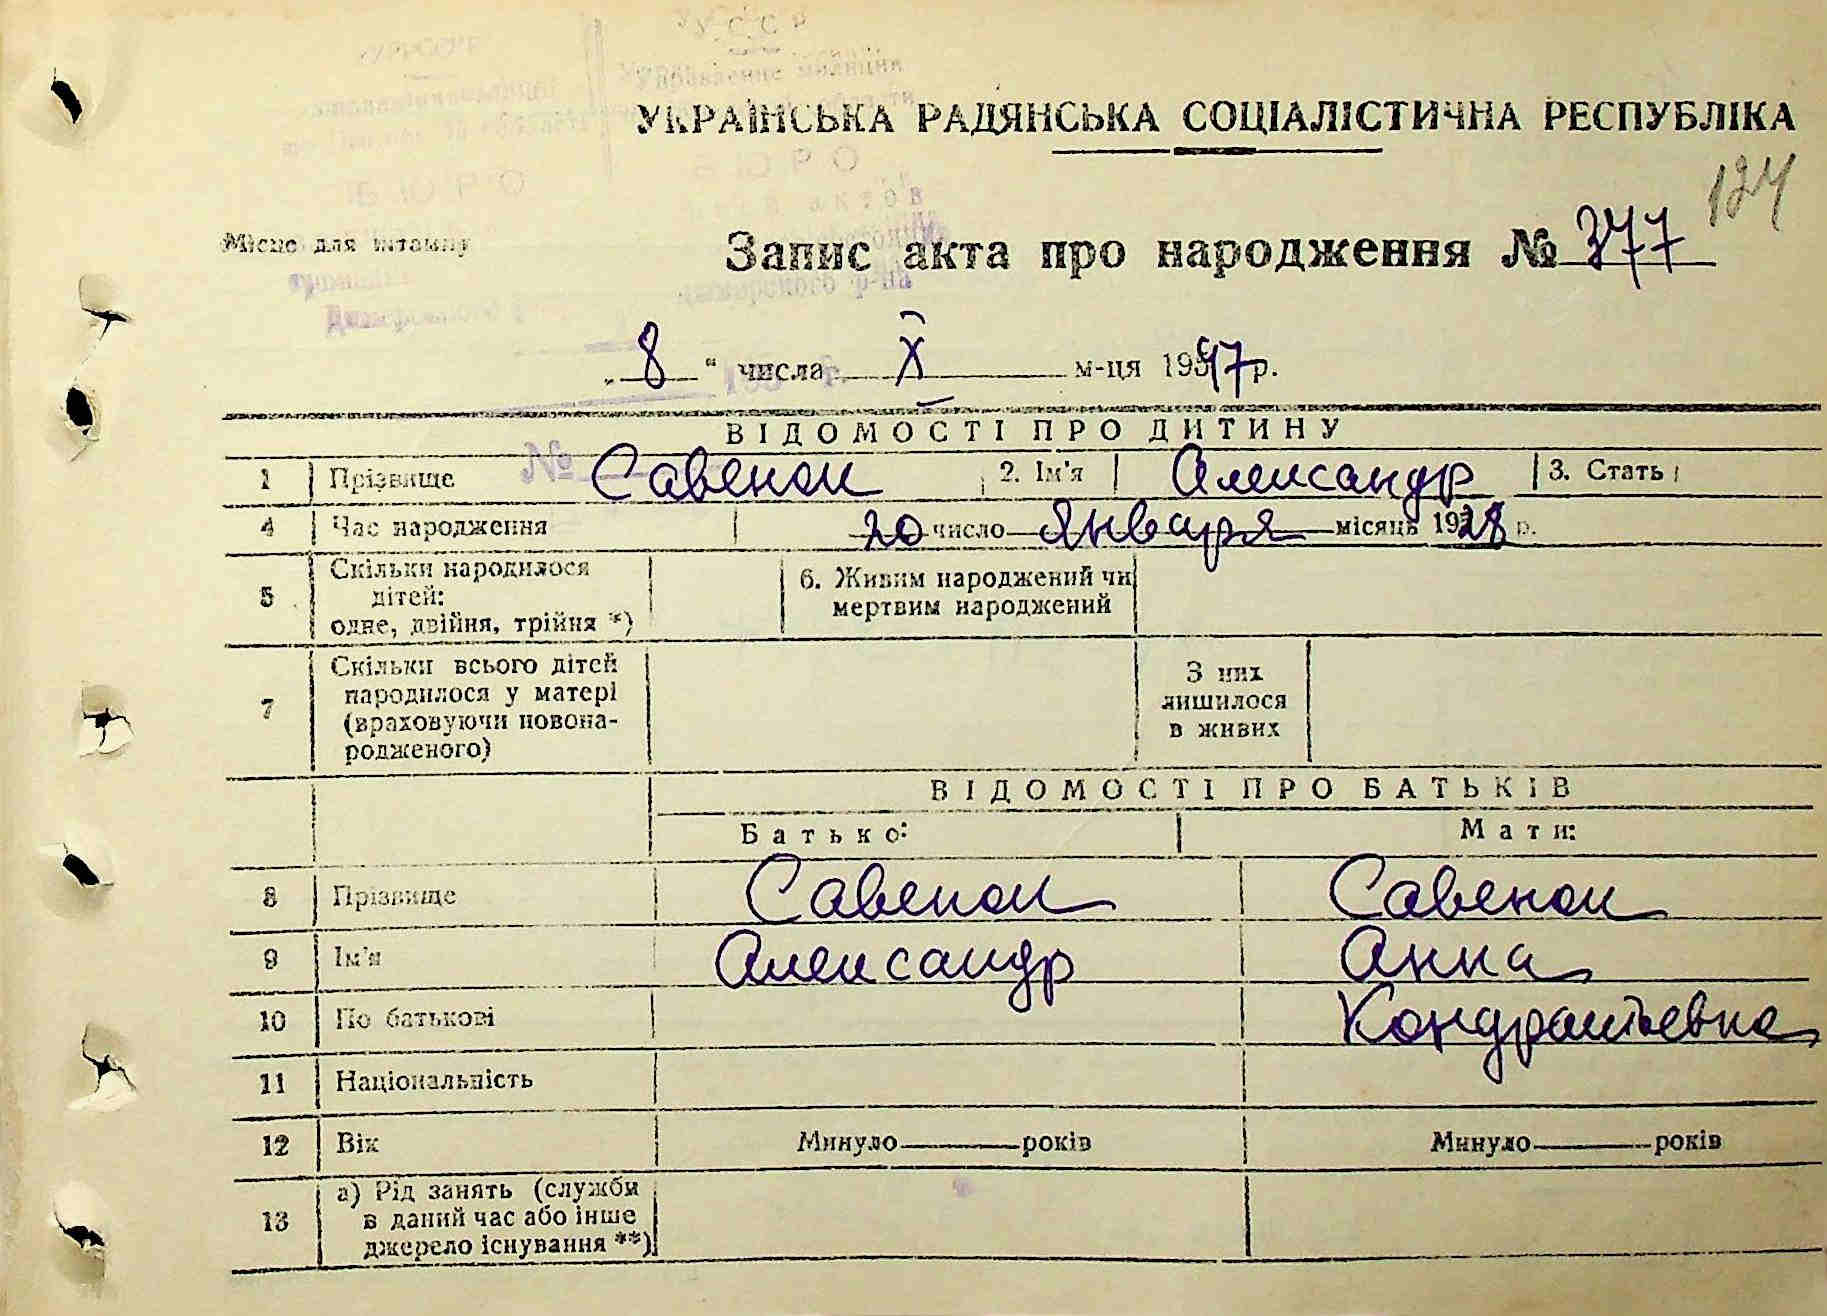 УССР
Управление милиции
БЮРО
актов
Дымерского р-на
УКРАЇНСЬКА РАДЯНСЬКА СОЦІАЛІСТИЧНА РЕСПУБЛІКА
124
Місце для штампу
Запис акта про народження № 377
„ 8 “ числа X м-ця 1947 р.
ВІДОМОСТІ ПРО ДИТИНУ
1 Прізвище Савенок 2. Ім'я Александр 3. Стать
4 Час народження 20 число января місяць 1928 р.
5 Скільки народилося
дітей:
одне, двійня, трійня *)
6. Живим народжений чи
мертвим народжений
7 Скільки всього дітей
народилося у матері
(враховуючи новона-
родженого)
З них
лишилося
в живих
ВІДОМОСТІ ПРО БАТЬКІВ
Батько: Мати:
8 Прізвище Савенок Савенок
9 Ім'я Александр Анна
10 По батькові Кондратьевна
11 Національність
12 Вік Минуло років Минуло років
13 а) Рід занять (служби
в даний час або інше
джерело існування **)